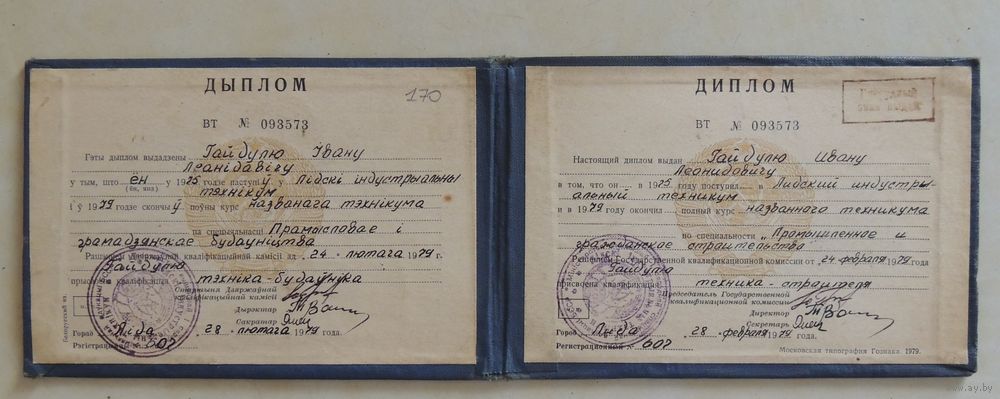 ДЫПЛОМ
170
ВТ № 093573
Гэты дыплом выдадзены Гайдулю Івану
Леанідавічу
у тым, што ён у 1975 годзе наступіў у Лідскі індустрыяльны
(ён, яна)
тэхнікум
і ў 1979 годзе скончыў поўны курс названага тэхнікума
па спецыяльнасці Прамысловае і
грамадзянскае будаўніцтва
Рашэннем Дзяржаўнай кваліфікацыйнай камісіі ад 24 лютага 1979 г.
Гайдулю
прысвоена кваліфікацыя тэхніка-будаўніка
Старшыня Дзяржаўнай
кваліфікацыйнай камісіі
Дырэктар
Сакратар
Горад Ліда 28 лютага 1979 года.
Рэгістрацыйны № 602
Белорусский яз.
ДИПЛОМ
ВТ № 093573
Настоящий диплом выдан Гайдулю Ивану
Леонидовичу
в том, что он в 1975 году поступил в Лидский индустри-
альный техникум
и в 1979 году окончил полный курс названного техникума
по специальности „Промышленное и
гражданское строительство
Решением Государственной квалификационной комиссии от 24 февраля 1979 года
Гайдулю
присвоена квалификация техника-строителя
Председатель Государственной
квалификационной комиссии
Директор
Секретарь
Город Лида 28 февраля 1979 года.
Регистрационный № 602
Московская типография Гознака 1979.
www.ay.by